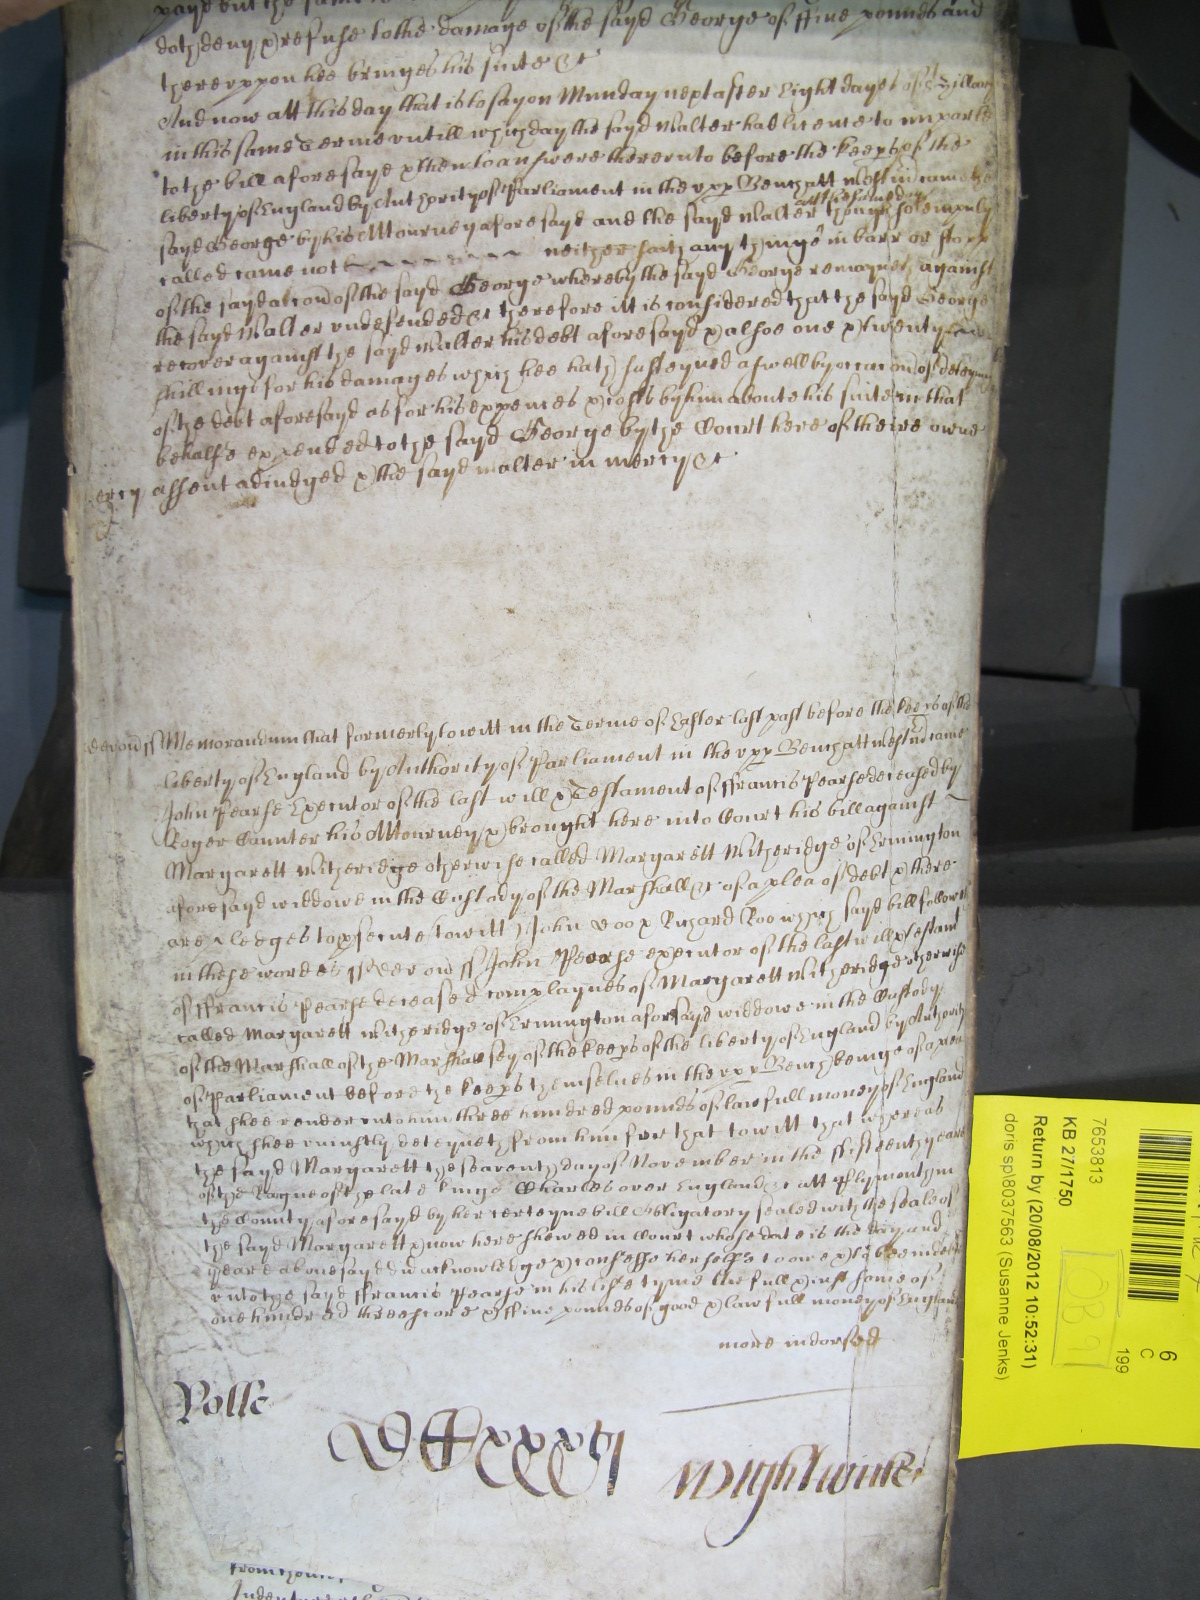 doth deny & refuse to the damage of the sayd George of ffive pounds and
thereuppon hee bringes his suite &c
And now att this day that is to say on Munday next after Eight dayes of St Hillary
in this same Terme untill which day the sayd Walter had licence to imparle
to the bill aforesayd & then to answere thereunto before the keeps of the
liberty of England by Authority of Parliament in the upp Bench att Westm came the
sayd George by his Attourney aforesayd and the sayd Walter although solempnly
called came not neither saith any thinge in barr or stopp
of the sayd accon of the sayd George whereby the sayd George remaynes against
the sayd Walter undefended &c therefore itt is considered that the sayd George
recover against the sayd Walter his debt aforesayd & alsoe one & twenty
shillings for his damages which hee hath susteyned aswell by occacon of deteyning
of the debt aforesayd as for his expences & costs by him aboute his suite in that
behalfe expended to the sayd George by the Court here of theire owne
assent adiudged & the sayd Walter in mercy &c
Devon ss Memorandum that formerly to witt in the Terme of Easter last past before the keeps of the
liberty of England by Authority of Parliament in the upp Bench att Westm came
John Pearse Executor of the last will & Testament of ffrancis Pearse deceased by
Roger Caunter his Attourney & brought here into Court his bill against
Margarett Witheridge otherwise called Margarett Witheridge of Ermington
aforesayd widdowe in the Custody of the Marshall &c of a plea of debt & there
are pledges to psecute to witt John Doo & Richard Roo which sayd bill followes
in these wordes ss Devon ss John Pearse executor of the last will & testamt
of ffrancis Pearse deceased complaynes of Margarett Witheridge otherwise
called Margarett Witheridge of Ermington aforesayd widdowe in the Custody
of the Marshall of the Marshallsey of the keeps of the liberty of England by Authority
of Parliament before the keeps themselves in the upp Bench beinge of a plea
that shee render unto him three hundred pounds of lawfull money of England
which shee uniustly deteyneth from him for that to witt that whereas
the sayd Margarett the seaventh day of November in the fifteenth yeare
of the Raigne of the late Kinge Charles over England &c att Plymouth in
the County aforesayd by her certeyne bill Obligatory sealed with the seale of
the sayd Margarett & now here shewed in Court whose date is the day and
yeare abovesayd did acknowledge & confesse herselfe to owe & to bee indebted
unto the sayd ffrancis Pearse in his life tyme the full & iust some of
one hundred threescore & ffive pounds of good & lawfull money of England
more indorsed
Rolle
Wightwicke
7653813
KB 27/1750
Return by (20/08/2012 10:52:31)
doris sp\8037563 (Susanne Jenks)
6
C
199